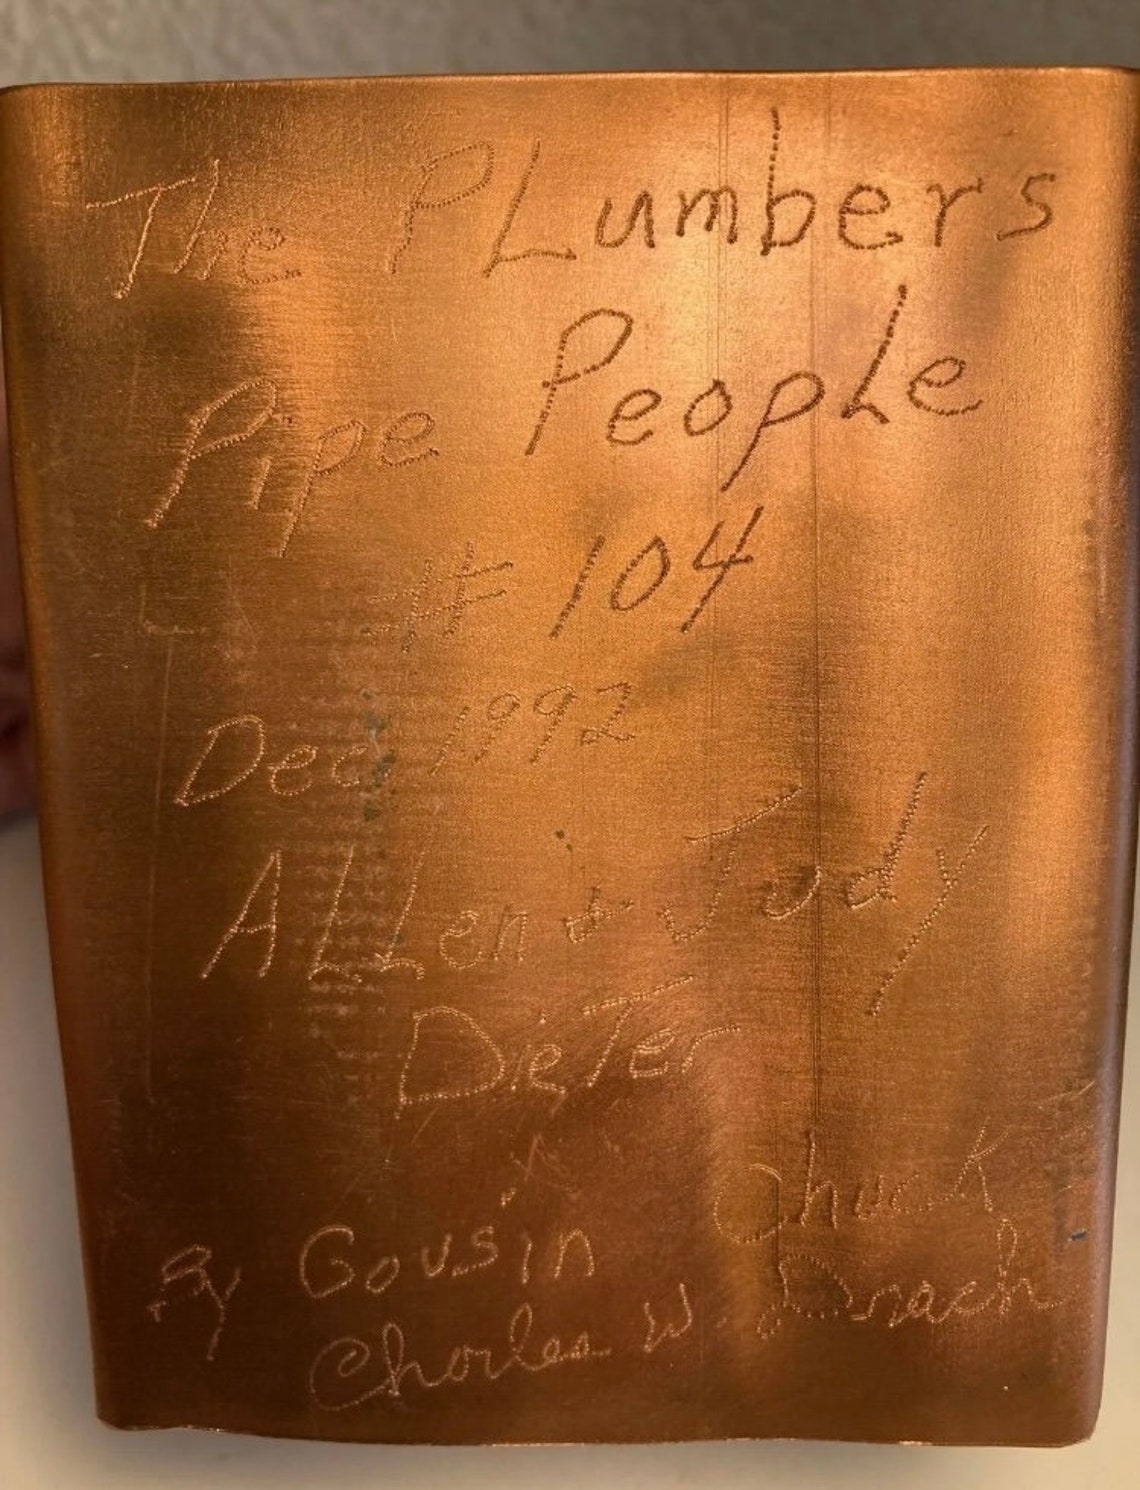 The PLumbers
Pipe PeopLe
# 104
Dec, 1992
ALLen & Judy
DieTer
By Cousin Chuck
Charles W. Drach